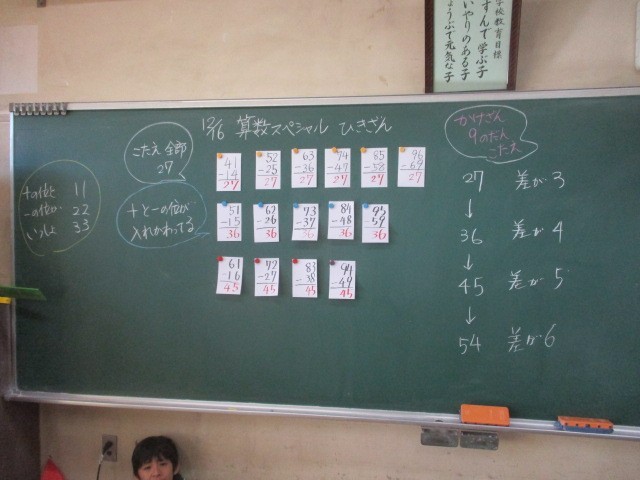 学校教育目標
すすんで学ぶ子
思いやりのある子
じょうぶで元気な子
12/6 算数スペシャル ひきざん
こたえ 全部
27
十の位と
一の位が
いっしょ
11
22
33
十と一の位が
入れかわってる
41
-14
27
52
-25
27
63
-36
27
74
-47
27
85
-58
27
96
-69
27
51
-15
36
62
-26
36
73
-37
36
84
-48
36
95
-59
36
61
-16
45
72
-27
45
83
-38
45
94
-49
45
かけざん
9のだん
こたえ
27 差が3
↓
36 差が4
↓
45 差が5
↓
54 差が6